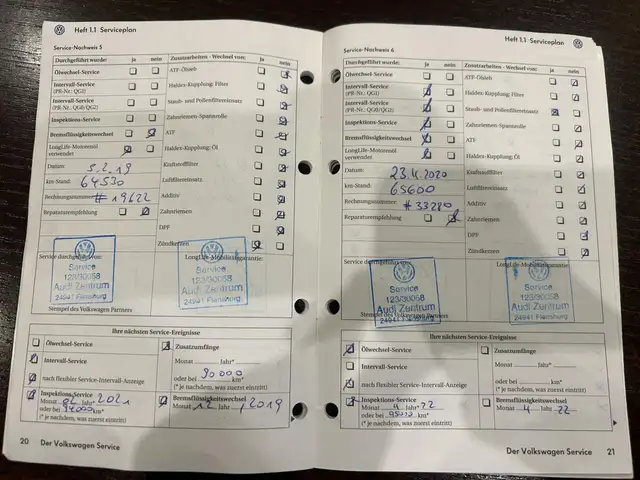 Heft 1.1 Serviceplan
Service-Nachweis 5
Durchgeführt wurde: ja nein
Zusatzarbeiten - Wechsel von: ja nein
Ölwechsel-Service
Intervall-Service
(PR-Nr.: QG1)
Intervall-Service
(PR-Nr.: QG0/QG2)
Inspektions-Service
Bremsflüssigkeitswechsel
LongLife-Motorenöl
verwendet
Datum: 5.2.19
km-Stand: 64530
Rechnungsnummer: # 19622
Reparaturempfehlung
ATF-Ölsieb
Haldex-Kupplung: Filter
Staub- und Pollenfiltereinsatz
Zahnriemen-Spannrolle
ATF
Haldex-Kupplung: Öl
Kraftstofffilter
Luftfiltereinsatz
Additiv
Zahnriemen
DPF
Zündkerzen
Service durchgeführt von:
LongLife-Mobilitätsgarantie:
Service
123/30058
Audi Zentrum
24941 Flensburg
Service
123/30058
Audi Zentrum
24941 Flensburg
Stempel des Volkswagen Partners
Ihre nächsten Service-Ereignisse
Ölwechsel-Service
Intervall-Service
nach flexibler Service-Intervall-Anzeige
Inspektions-Service
Monat 02 Jahr* 2021
oder bei km*
(* je nachdem, was zuerst eintritt)
Zusatzumfänge
Monat Jahr*
oder bei 90000 km*
(* je nachdem, was zuerst eintritt)
Bremsflüssigkeitswechsel
Monat 12 Jahr 2019
20 Der Volkswagen Service
Heft 1.1 Serviceplan
Service-Nachweis 6
Durchgeführt wurde: ja nein
Zusatzarbeiten - Wechsel von: ja nein
Ölwechsel-Service
Intervall-Service
(PR-Nr.: QG1)
Intervall-Service
(PR-Nr.: QG0/QG2)
Inspektions-Service
Bremsflüssigkeitswechsel
LongLife-Motorenöl
verwendet
Datum: 23.4.2020
km-Stand: 65600
Rechnungsnummer: # 33280
Reparaturempfehlung
ATF-Ölsieb
Haldex-Kupplung: Filter
Staub- und Pollenfiltereinsatz
Zahnriemen-Spannrolle
ATF
Haldex-Kupplung: Öl
Kraftstofffilter
Luftfiltereinsatz
Additiv
Zahnriemen
DPF
Zündkerzen
Service durchgeführt von:
LongLife-Mobilitätsgarantie:
Service
123/30058
Audi Zentrum
24941 Flensburg
Service
123/30058
Audi Zentrum
24941 Flensburg
Stempel des Volkswagen Partners
Ihre nächsten Service-Ereignisse
Ölwechsel-Service
Intervall-Service
nach flexibler Service-Intervall-Anzeige
Inspektions-Service
Monat 4 Jahr* 22
oder bei km*
(* je nachdem, was zuerst eintritt)
Zusatzumfänge
Monat Jahr*
oder bei km*
(* je nachdem, was zuerst eintritt)
Bremsflüssigkeitswechsel
Monat 4 Jahr 22
Der Volkswagen Service 21